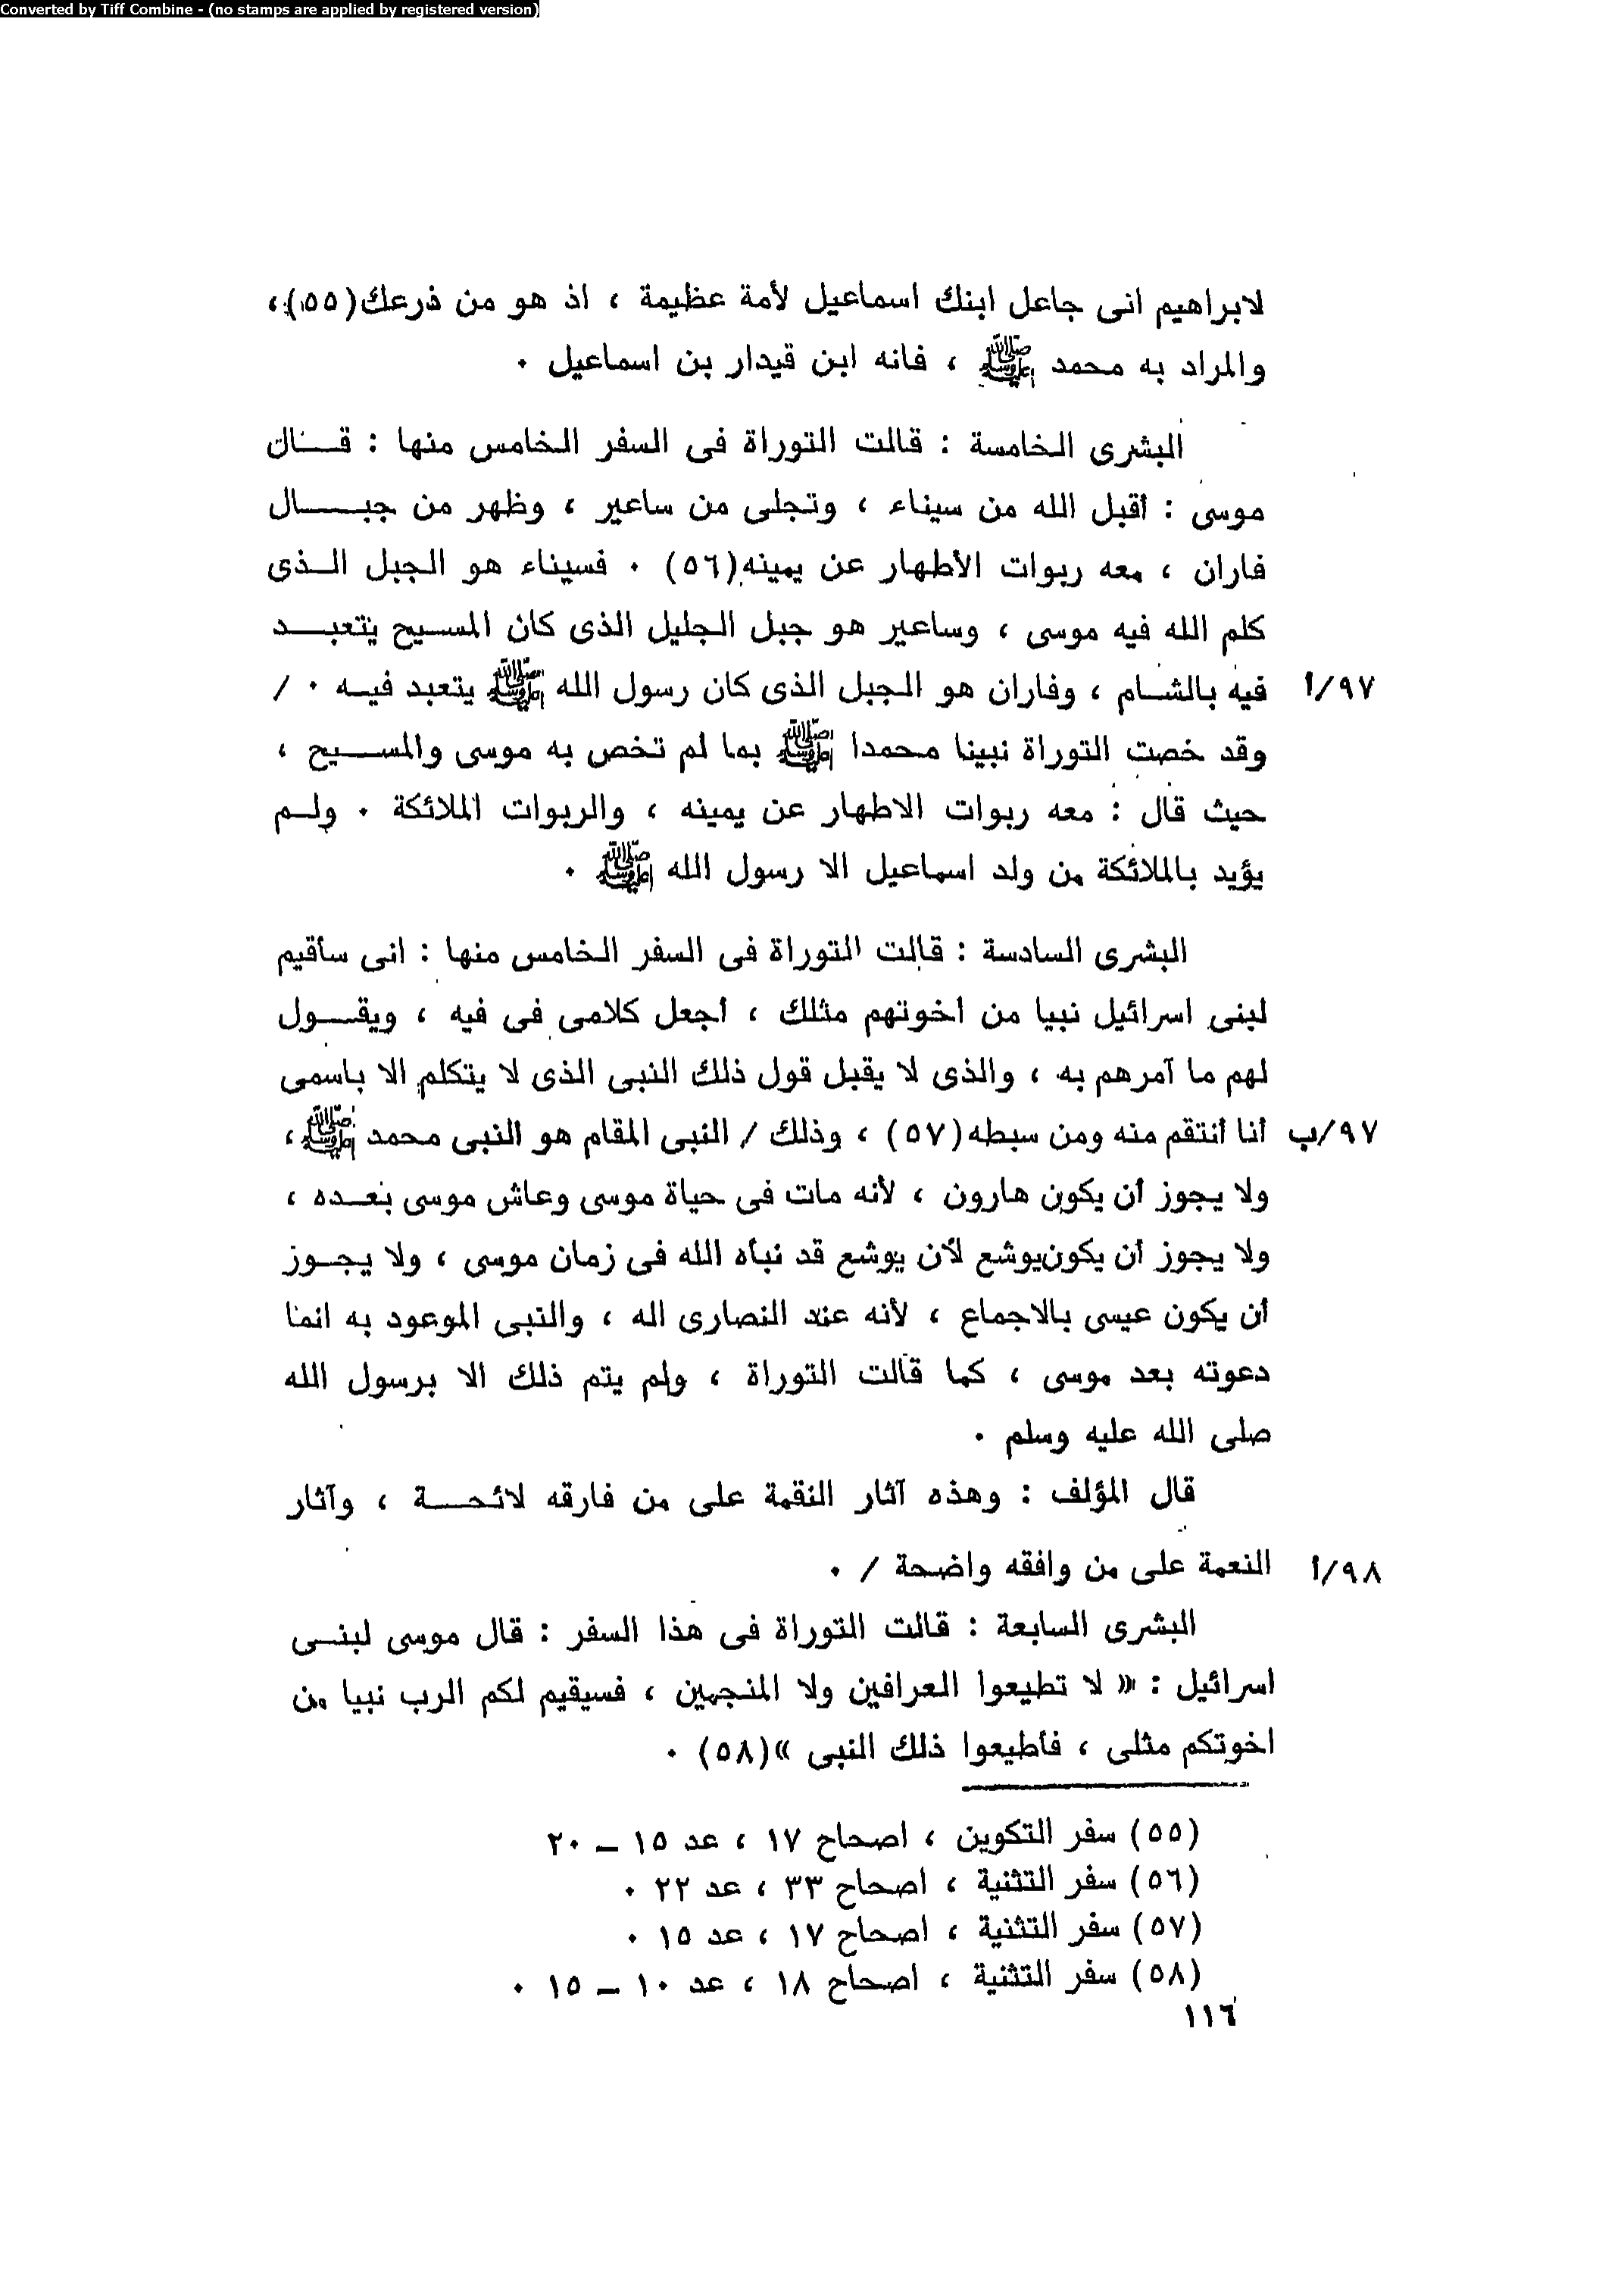 Converted by Tiff Combine - (no stamps are applied by registered version)
لابراهيم انى جاعل ابنك اسماعيل لأمة عظيمة ، اذ هو من ذرعك(٥٥)،
والمراد به محمد ﷺ ، فانه ابن قيدار بن اسماعيل ٠
البشرى الخامسة : قالت التوراة فى السفر الخامس منها : قــال
موسى : أقبل الله من سيناء ، وتجلى من ساعير ، وظهر من جبــال
فاران ، معه ربوات الأطهار عن يمينه(٥٦) ٠ فسيناء هو الجبل الـذى
كلم الله فيه موسى ، وساعير هو جبل الجليل الذى كان المسيح يتعبــد
فيه بالشـام ، وفاران هو الجبل الذى كان رسول الله ﷺ يتعبد فيـه ٠ / ٩٧/أ
وقد خصت التوراة نبينا محمدا ﷺ بما لم تخص به موسى والمسـيح ،
حيث قال : معه ربوات الاطهار عن يمينه ، والربوات الملائكة ٠ ولـم
يؤيد بالملائكة من ولد اسماعيل الا رسول الله ﷺ ٠
البشرى السادسة : قالت التوراة فى السفر الخامس منها : انى سأقيم
لبنى اسرائيل نبيا من اخوتهم مثلك ، أجعل كلامى فى فيه ، ويقـول
لهم ما آمرهم به ، والذى لا يقبل قول ذلك النبى الذى لا يتكلم الا باسمى
أنا أنتقم منه ومن سبطه(٥٧) ، وذلك / النبى المقام هو النبى محمد ﷺ ، ٩٧/ب
ولا يجوز أن يكون هارون ، لأنه مات فى حياة موسى وعاش موسى بعـده ،
ولا يجوز أن يكون يوشع لأن يوشع قد نبأه الله فى زمان موسى ، ولا يجـوز
أن يكون عيسى بالاجماع ، لأنه عند النصارى اله ، والنبى الموعود به انما
دعوته بعد موسى ، كما قالت التوراة ، ولم يتم ذلك الا برسول الله
صلى الله عليه وسلم ٠
قال المؤلف : وهذه آثار النقمة على من فارقه لائحــة ، وآثار
النعمة على من وافقه واضحة / ٠ ٩٨/أ
البشرى السابعة : قالت التوراة فى هذا السفر : قال موسى لبنـى
اسرائيل : « لا تطيعوا العرافين ولا المنجمين ، فسيقيم لكم الرب نبيا من
اخوتكم مثلى ، فأطيعوا ذلك النبى »(٥٨) ٠
(٥٥) سفر التكوين ، اصحاح ١٧ ، عد ١٥ – ٢٠
(٥٦) سفر التثنية ، اصحاح ٣٣ ، عد ٢٢ ٠
(٥٧) سفر التثنية ، اصحاح ١٧ ، عد ١٥ ٠
(٥٨) سفر التثنية ، اصحاح ١٨ ، عد ١٠ – ١٥ ٠
١١٦